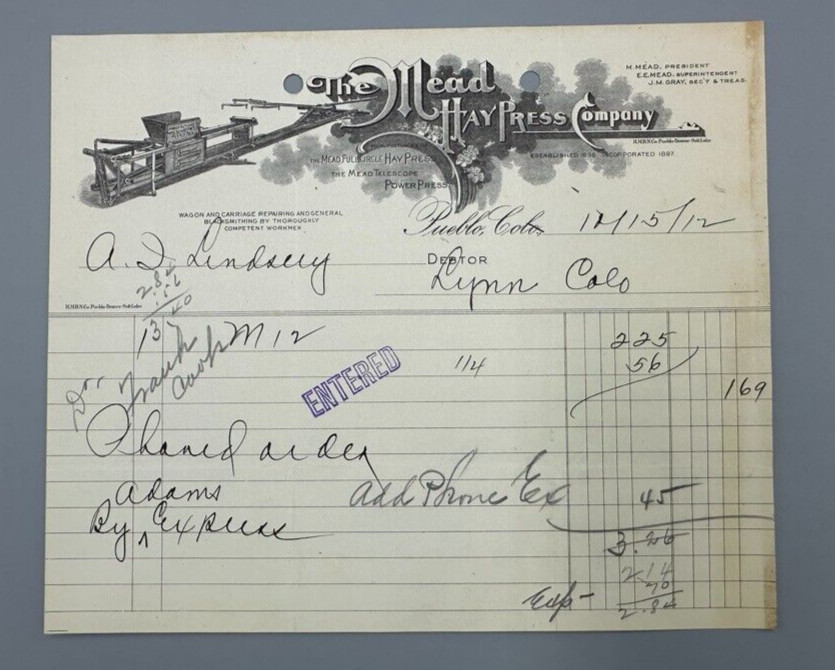 M. MEAD, PRESIDENT
E.E. MEAD, SUPERINTENDENT
J.M. GRAY, SEC'Y & TREAS.
The Mead
HAY PRESS Company
H.M.B.N.Co. Pueblo-Denver-Salt Lake
MANUFACTURERS OF
THE MEAD FULL CIRCLE HAY PRESS
THE MEAD TELESCOPE
POWER PRESS
INCORPORATED 1897.
WAGON AND CARRIAGE REPAIRING AND GENERAL
BLACKSMITHING BY THOROUGHLY
COMPETENT WORKMEN
Pueblo, Colo. 12/15/12
A. I. Lindsey
DEBTOR
Lynn Colo
2.84
1.56
40
H.M.B.N.Co. Pueblo-Denver-Salt Lake
13 M 12 225
Dr. Frank Cook
ENTERED
1/4 56
169
Phoned order
Adams add Phone Ex 45
By Express
3.26
2.14
70
Exp- 2.84